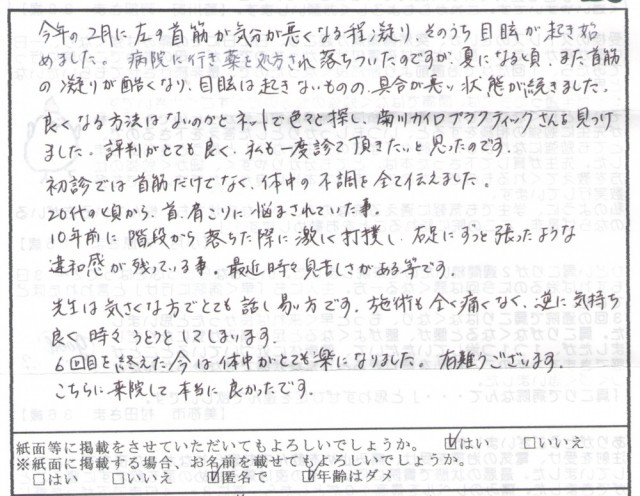 今年の2月に左の首筋が気分が悪くなる程凝り、そのうち目眩が起き始
めました。病院に行き薬を処方され落ちついたのですが、夏になる頃、また首筋
の凝りが酷くなり、目眩は起きないものの、具合が悪い状態が続きました。
良くなる方法はないのかとネットで色々と探し、菊川カイロプラクティックさんを見つけ
ました。評判がとても良く、私も一度診て頂きたいと思ったのです。
初診では首筋だけでなく、体中の不調を全て伝えました。
20代の頃から、首、肩こりに悩まされていた事。
10年前に階段から落ちた際に激しく打撲し、右足にずっと張ったような
違和感が残っている事。最近時々息苦しさがある等です。
先生は気さくな方でとても話し易い方です。施術も全く痛くなく、逆に気持ち
良く時々うとうとしてしまいます。
6回目を終えた今は体中がとても楽になりました。有難うございます。
こちらに来院して本当に良かったです。
紙面等に掲載をさせていただいてもよろしいでしょうか。 ☑はい □いいえ
※紙面に掲載する場合、お名前を載せてもよろしいでしょうか。
□はい □いいえ ☑匿名で ☑年齢はダメ